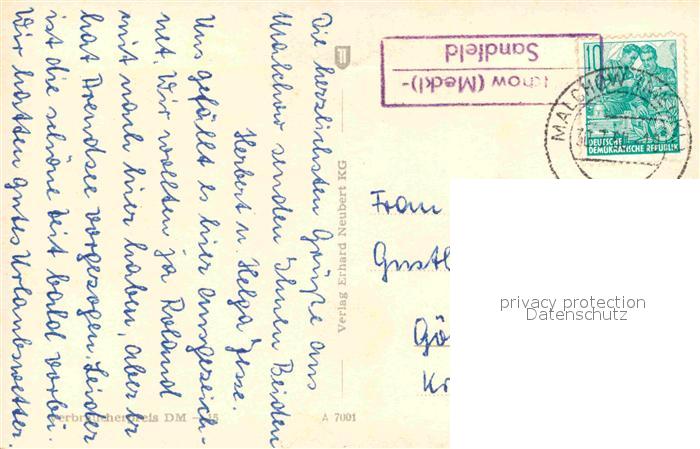 Die herzlichsten Grüße aus
Malchow senden Ihnen Beiden
Herbert u. Helga Jesse.
Uns gefällt es hier ausgezeich-
net. Wir wollten ja Roland
mit nach hier haben, aber er
hat Arendsee vorgezogen. Leider
ist die schöne Zeit bald vorbei.
Wir hatten gutes Urlaubswetter.
Verlag Erhard Neubert KG
Verbraucherpreis DM -,15
A 7001
chow (Meckl)-
Sandfeld
10
DEUTSCHE
DEMOKRATISCHE REPUBLIK
MALCHOW
Frau
Gustl
Gö
Kr
privacy protection
Datenschutz